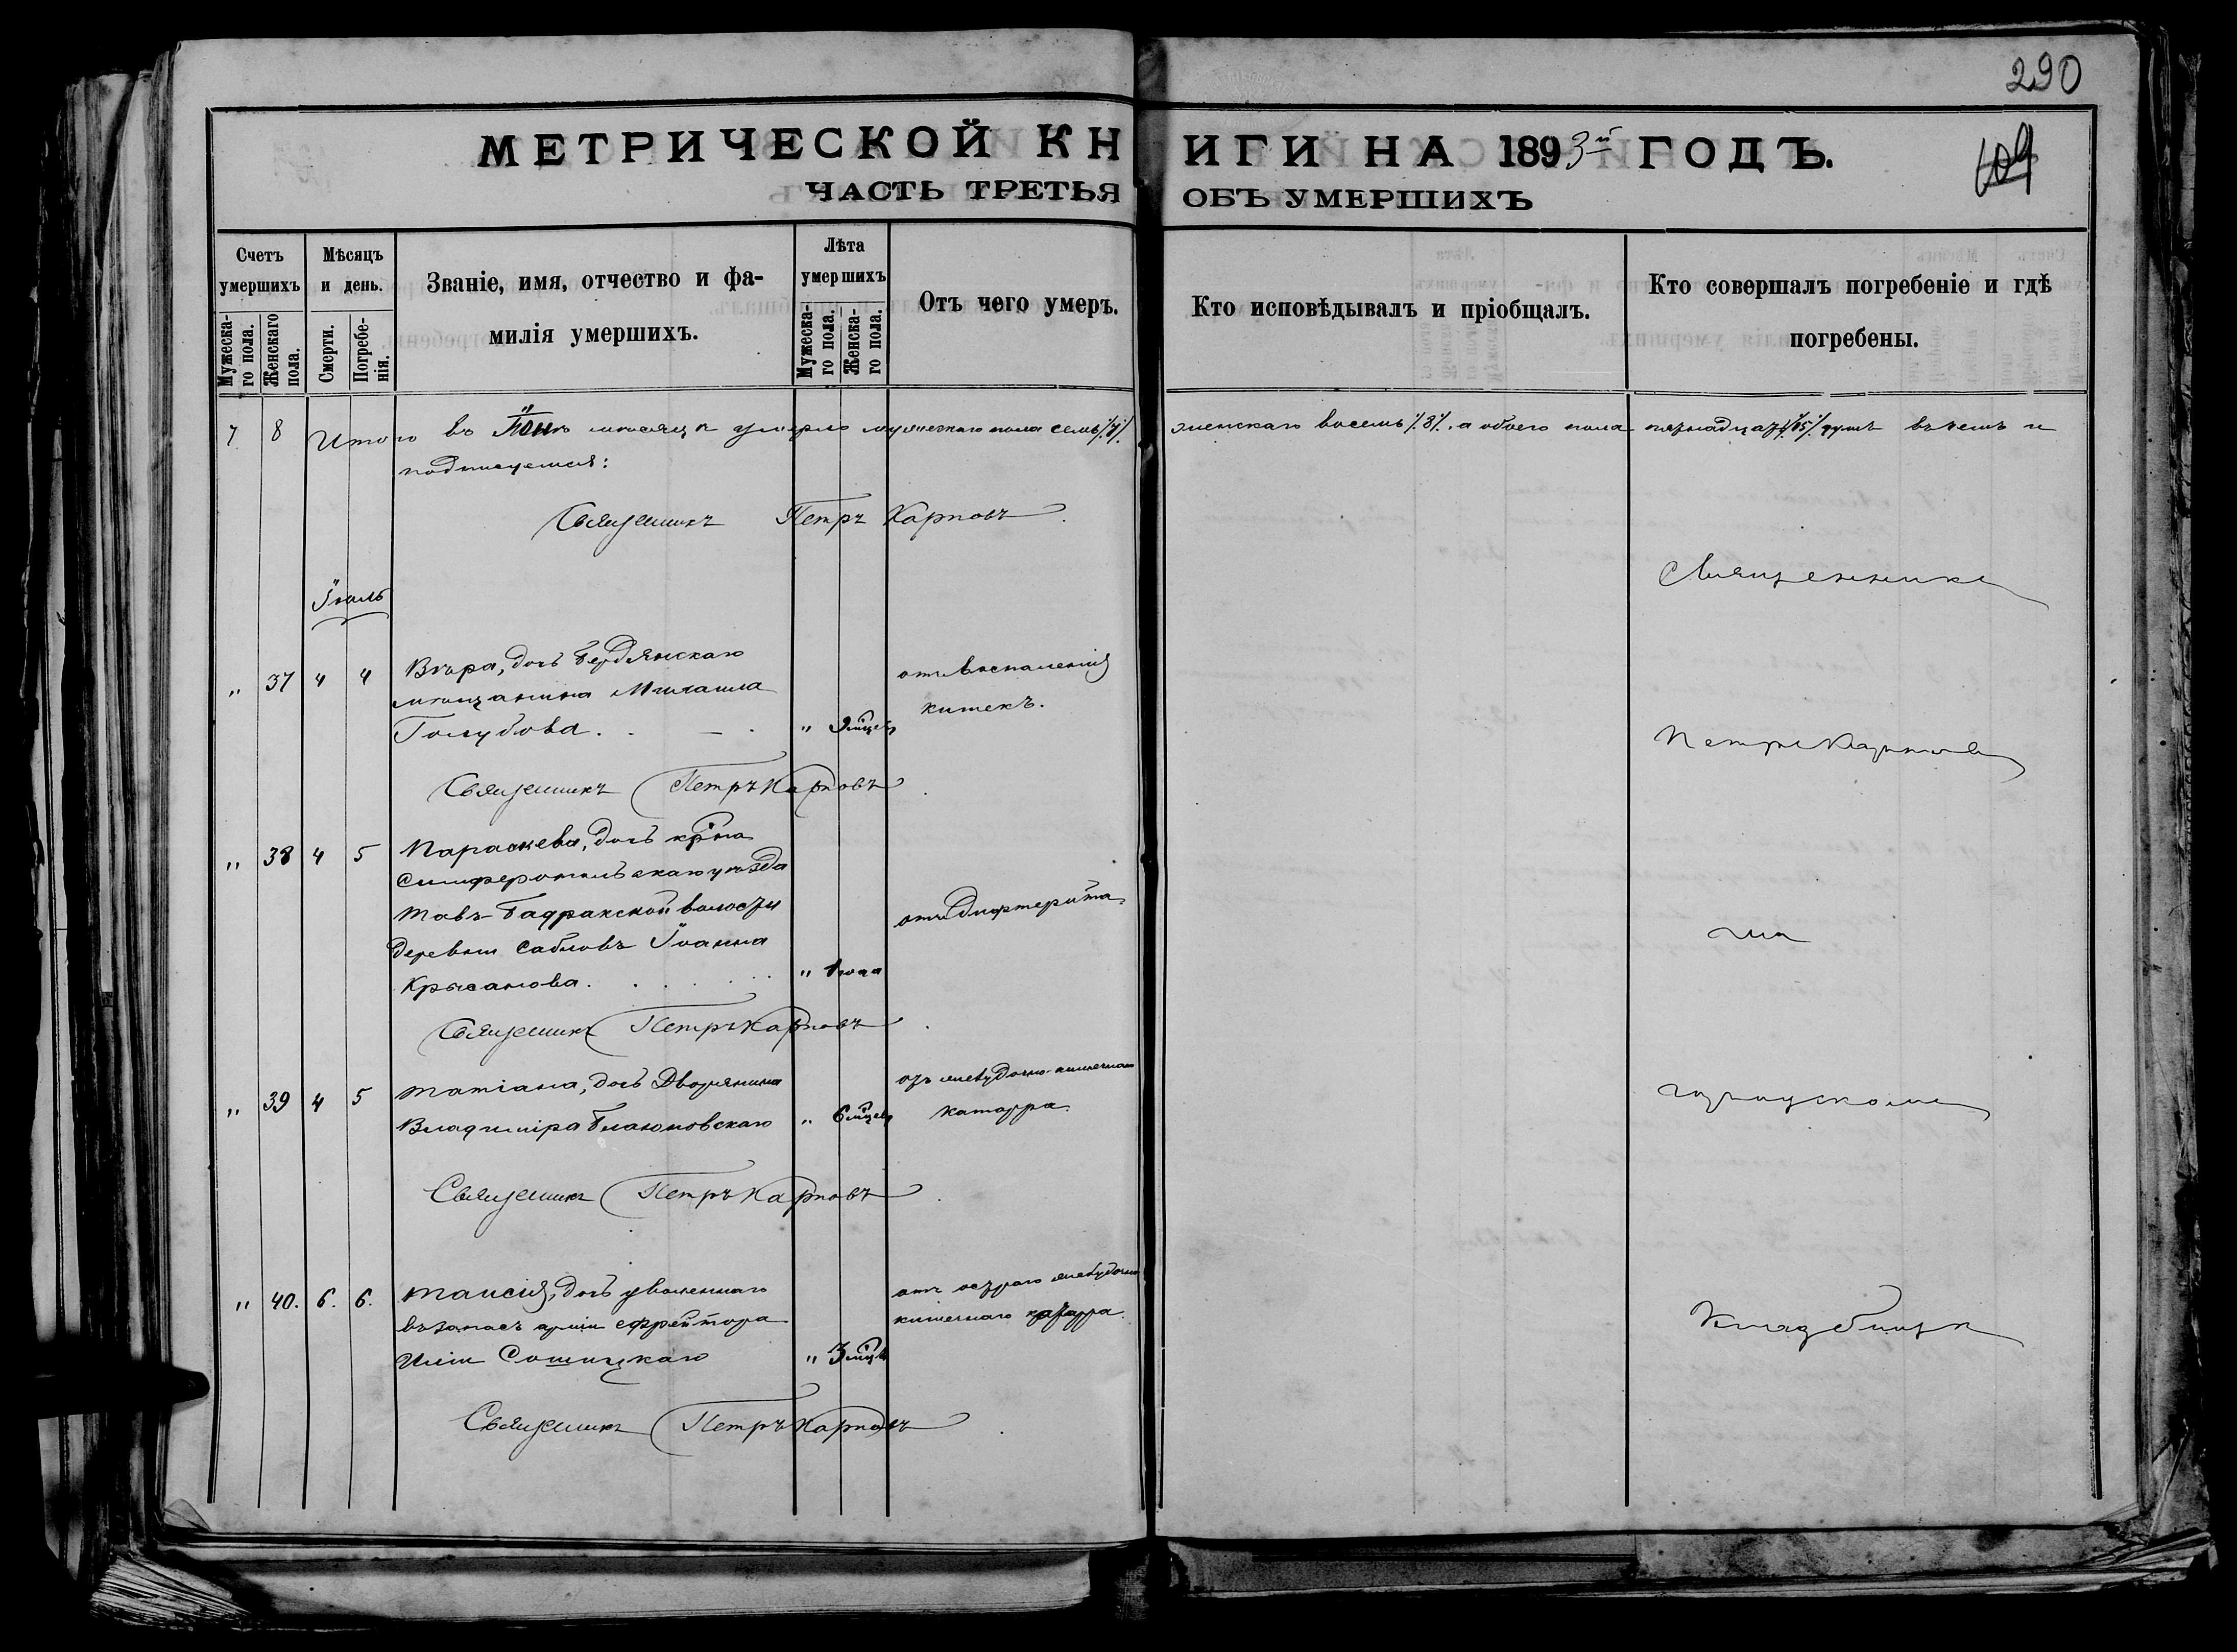 290
МЕТРИЧЕСКОЙ КНИГИ НА 1893й ГОДЪ.
109
ЧАСТЬ ТРЕТЬЯ ОБЪ УМЕРШИХЪ
Счетъ умершихъ
Мужеска-го пола.
Женскаго пола.
Мѣсяцъ и день.
Смерти.
Погребе-нія.
Званіе, имя, отчество и фа-
милія умершихъ.
Лѣта умершихъ
Мужеска-го пола.
Женска-го пола.
Отъ чего умеръ.
Кто исповѣдывалъ и пріобщалъ.
Кто совершалъ погребеніе и гдѣ
погребены.
7 8 Итого въ Іюнѣ мѣсяцѣ умерло мужескаго пола семь /7/ женскаго восемь /8/. а обоего пола пятнадцать /15/ душъ въ чемъ и
подписуемся:
Священникъ Петръ Карповъ.
Іюль
" 37 4 4 Вѣра, дочь Бердянскаго
мѣщанина Михаила
Голубова. " 9 мѣцев
отъ воспаленія
кишекъ.
Священникъ Петръ Карповъ.
" 38 4 5 Параскева, дочь кр-на
Симферопольскаго уѣзда
Тавъ-Бадракской волости
деревни Сабловъ Іоанна
Крысанова. " 1 года
отъ дифтерита
Священникъ Петръ Карповъ.
" 39 4 5 Татіана, дочь Дворянина
Владиміра " 6 мѣцев
отъ желудочно-кишечнаго
катарра.
Священникъ Петръ Карповъ.
" 40. 6. 6. Таисія, дочь уволеннаго
въ запасъ арміи ефрейтора
Иліи Сошицкаго " 3 мѣцв
отъ остраго желудочно
кишечнаго катарра.
Священникъ Петръ Карповъ
Священникъ
Петръ Карповъ
на
городскомъ
Кладбищѣ